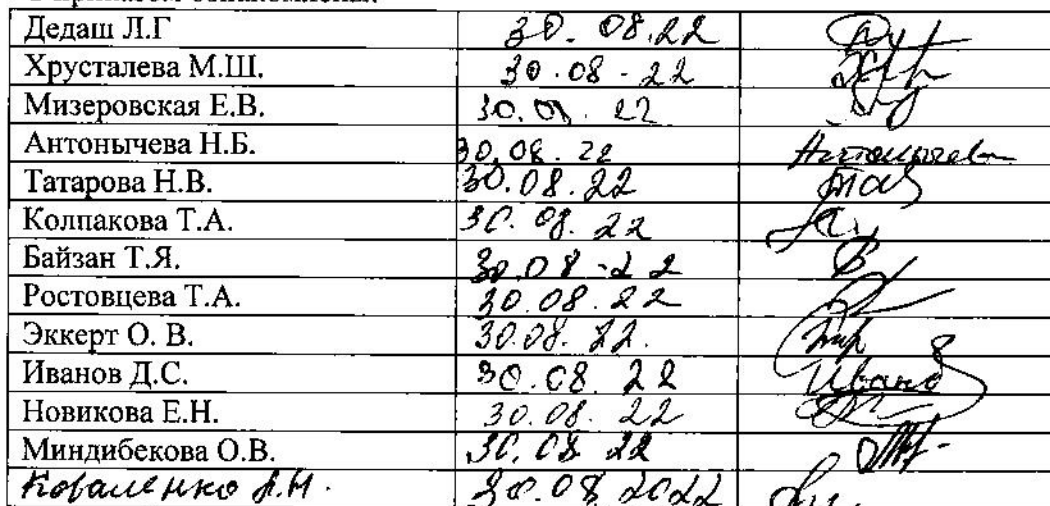 Дедаш Л.Г 30. 08.22
Хрусталева М.Ш. 30.08-22
Мизеровская Е.В. 30.08. 22
Антонычева Н.Б. 30.08. 22 Антонычева
Татарова Н.В. 30.08.22
Колпакова Т.А. 30. 08. 22
Байзан Т.Я. 30.08-22
Ростовцева Т.А. 30.08.22
Эккерт О. В. 30.08. 22.
Иванов Д.С. 30.08. 22 Иванов
Новикова Е.Н. 30.08. 22
Миндибекова О.В. 30. 08 22
Коваленко А.Н. 30.08 2022